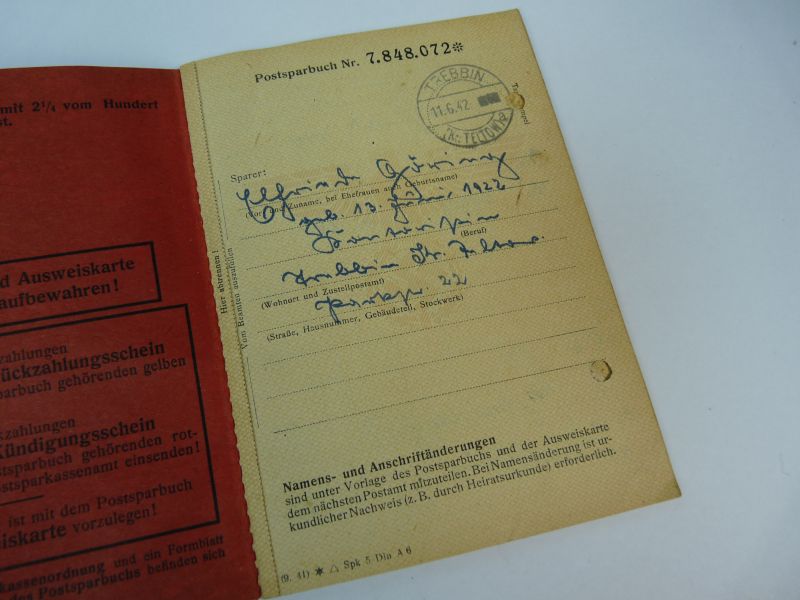 mit 2¼ vom Hundert
st.
d Ausweiskarte
aufbewahren!
zahlungen
ückzahlungsschein
sparbuch gehörenden gelben
kzahlungen
Kündigungsschein
stsparbuch gehörenden rot-
ostsparkassenamt einsenden!
ist mit dem Postsparbuch
eiskarte vorzulegen!
rkassenordnung und ein Formblatt
des Postsparbuchs befinden sich
Hier abtrennen!
Vom Beamten auszufüllen
Postsparbuch Nr. 7.848.072*
TREBBIN
11.6.42
(Kr. TELTOW)
Sparer:
Elfriede Göring
(Vor- und Zuname, bei Ehefrauen auch Geburtsname)
geb. 13. Juni 1922
Kontoristin
(Beruf)
Trebbin Kr. Teltow.
(Wohnort und Zustellpostamt)
Parkstr. 22
(Straße, Hausnummer, Gebäudeteil, Stockwerk)
Namens- und Anschriftänderungen
sind unter Vorlage des Postsparbuchs und der Ausweiskarte
dem nächsten Postamt mitzuteilen. Bei Namensänderung ist ur-
kundlicher Nachweis (z. B. durch Heiratsurkunde) erforderlich.
(9. 41) * △ Spk 5 Din A 6